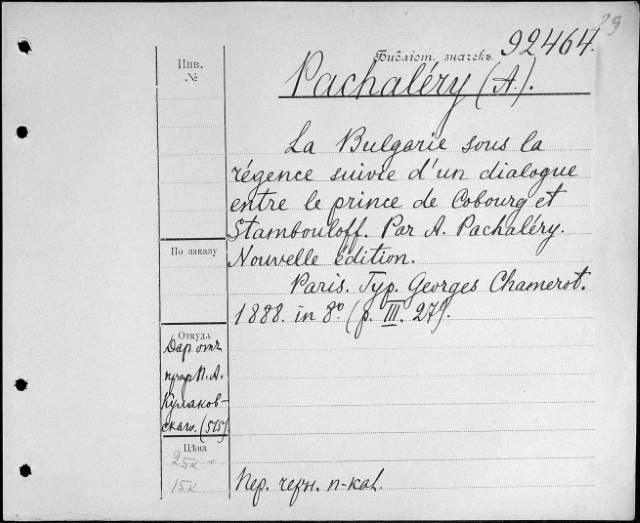 29
Библіот. значекъ
92464.
Инв.
№
Pachaléry (A.).
La Bulgarie sous la
régence suivie d'un dialogue
entre le prince de Cobourg et
Stambouloff. Par A. Pachaléry.
Nouvelle édition.
Paris. Typ. Georges Chamerot.
1888. in 8º (p. III. 27).
По заказу
Откуда
Даръ отъ
проф П. А.
Кулаков-
скаго. (515)
Цѣна
25к
15к
Пер. черн. п-кат.